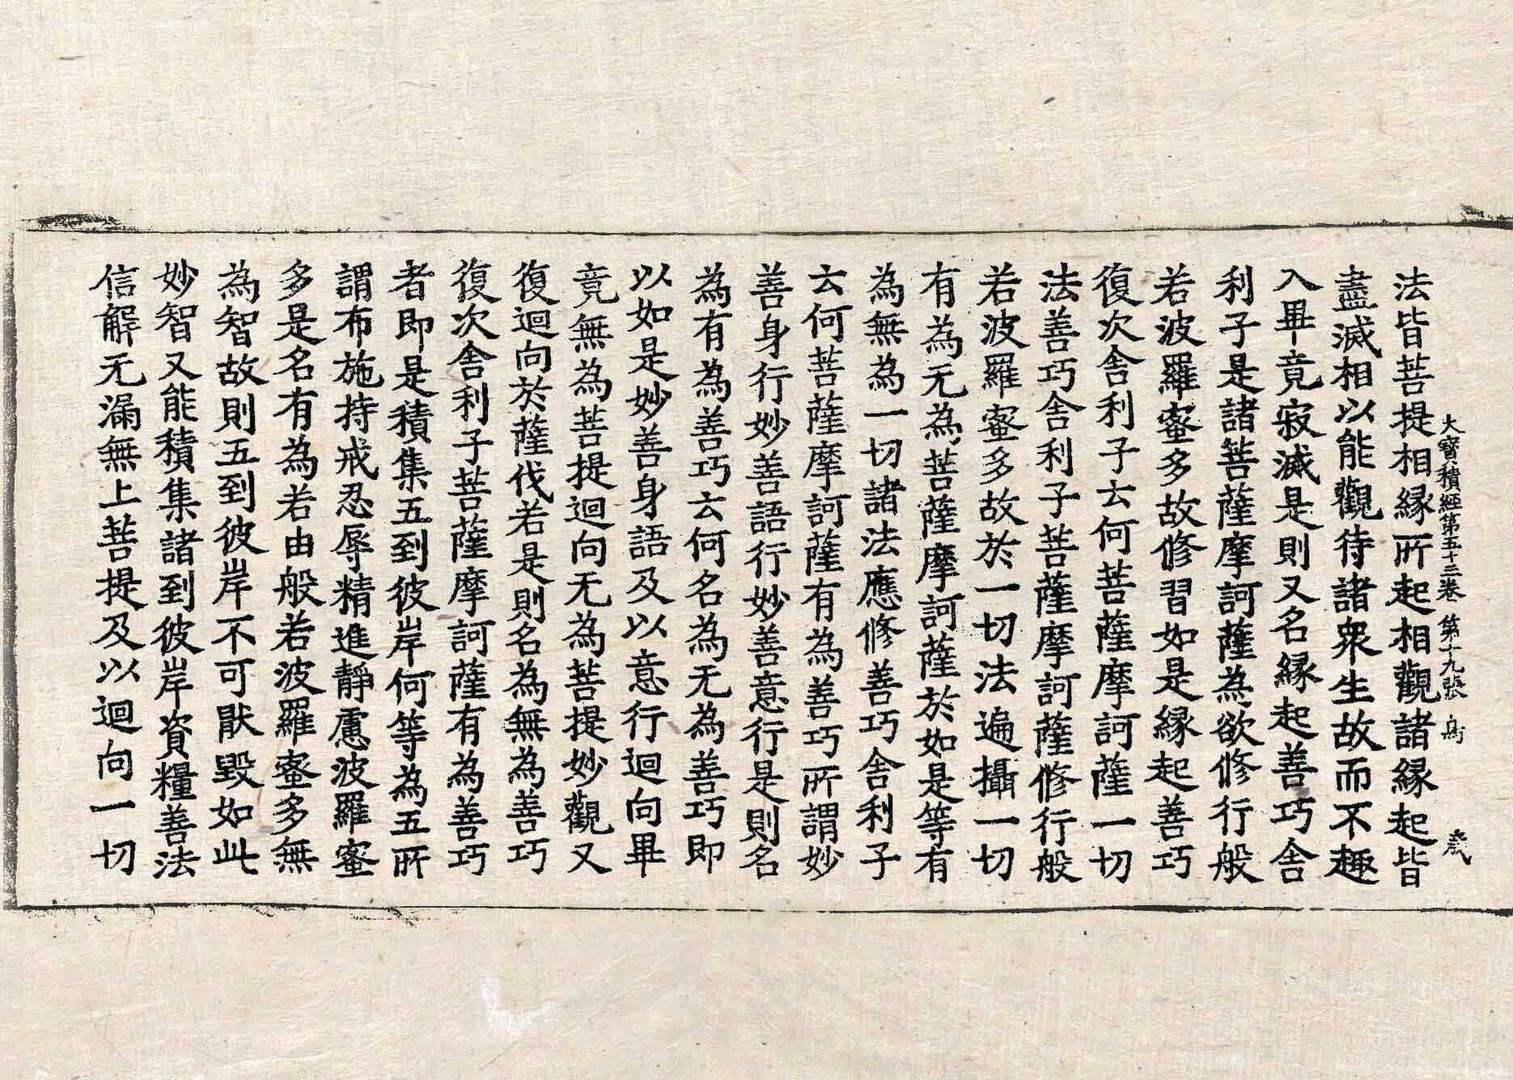 大寶積經第五十三卷 第十九張 鳥
法皆菩提相縁所起相觀諸縁起皆
盡滅相以能觀待諸衆生故而不趣
入畢竟寂滅是則又名縁起善巧舍
利子是諸菩薩摩訶薩為欲修行般
若波羅蜜多故修習如是縁起善巧
復次舍利子云何菩薩摩訶薩一切
法善巧舍利子菩薩摩訶薩修行般
若波羅蜜多故於一切法遍攝一切
有為无為菩薩摩訶薩於如是等有
為無為一切諸法應修善巧舍利子
云何菩薩摩訶薩有為善巧所謂妙
善身行妙善語行妙善意行是則名
為有為善巧云何名為无為善巧即
以如是妙善身語及以意行迴向畢
竟無為菩提迴向无為菩提妙觀又
復迴向於薩伐若是則名為無為善巧
復次舍利子菩薩摩訶薩有為善巧
者即是積集五到彼岸何等為五所
謂布施持戒忍辱精進靜慮波羅蜜
多是名有為若由般若波羅蜜多無
為智故則五到彼岸不可猒毀如此
妙智又能積集諸到彼岸資糧善法
信解无漏無上菩提及以迴向一切